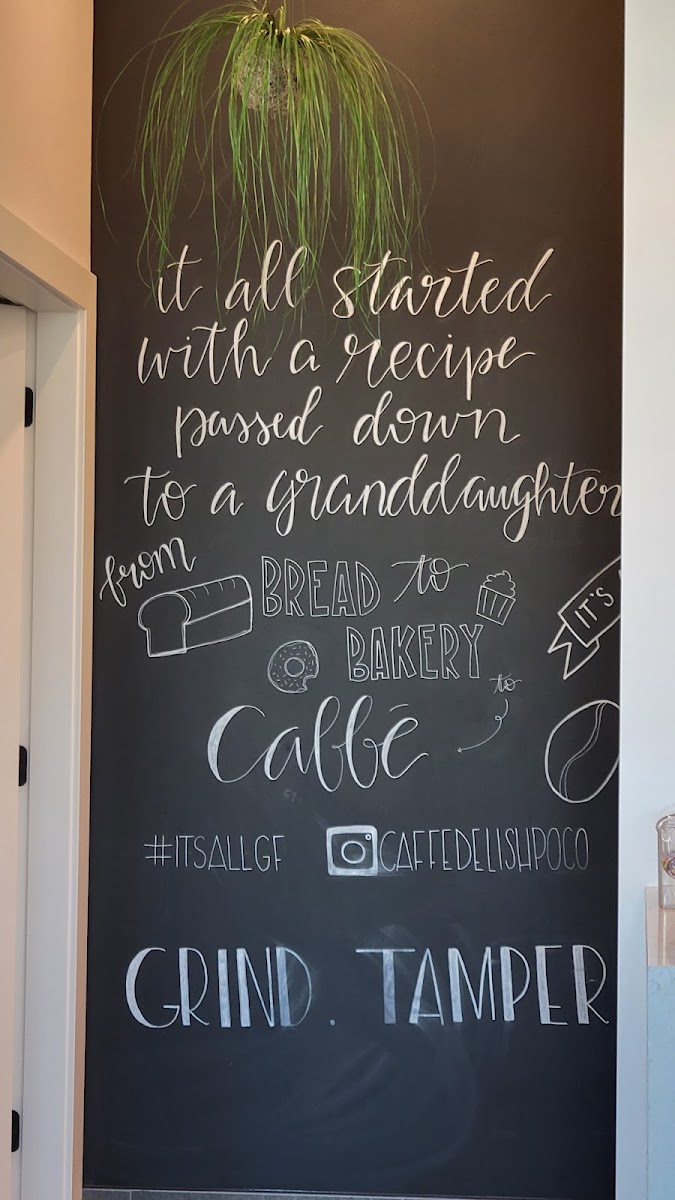 it all started
with a recipe
passed down
to a granddaughter
from
BREAD to
BAKERY
to
Caffé
IT'S
#ITSALLGF CAFFEDELISHPOCO
GRIND. TAMPER